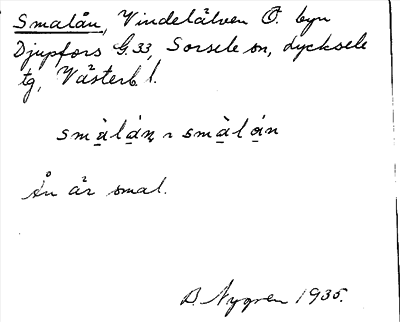 Smalån, Vindelälven Ö. byn
Djupfors G.33, Sorsele sn, Lycksele
tg, Västerb. l.
Ån är smal.
B. Nygren 1935.